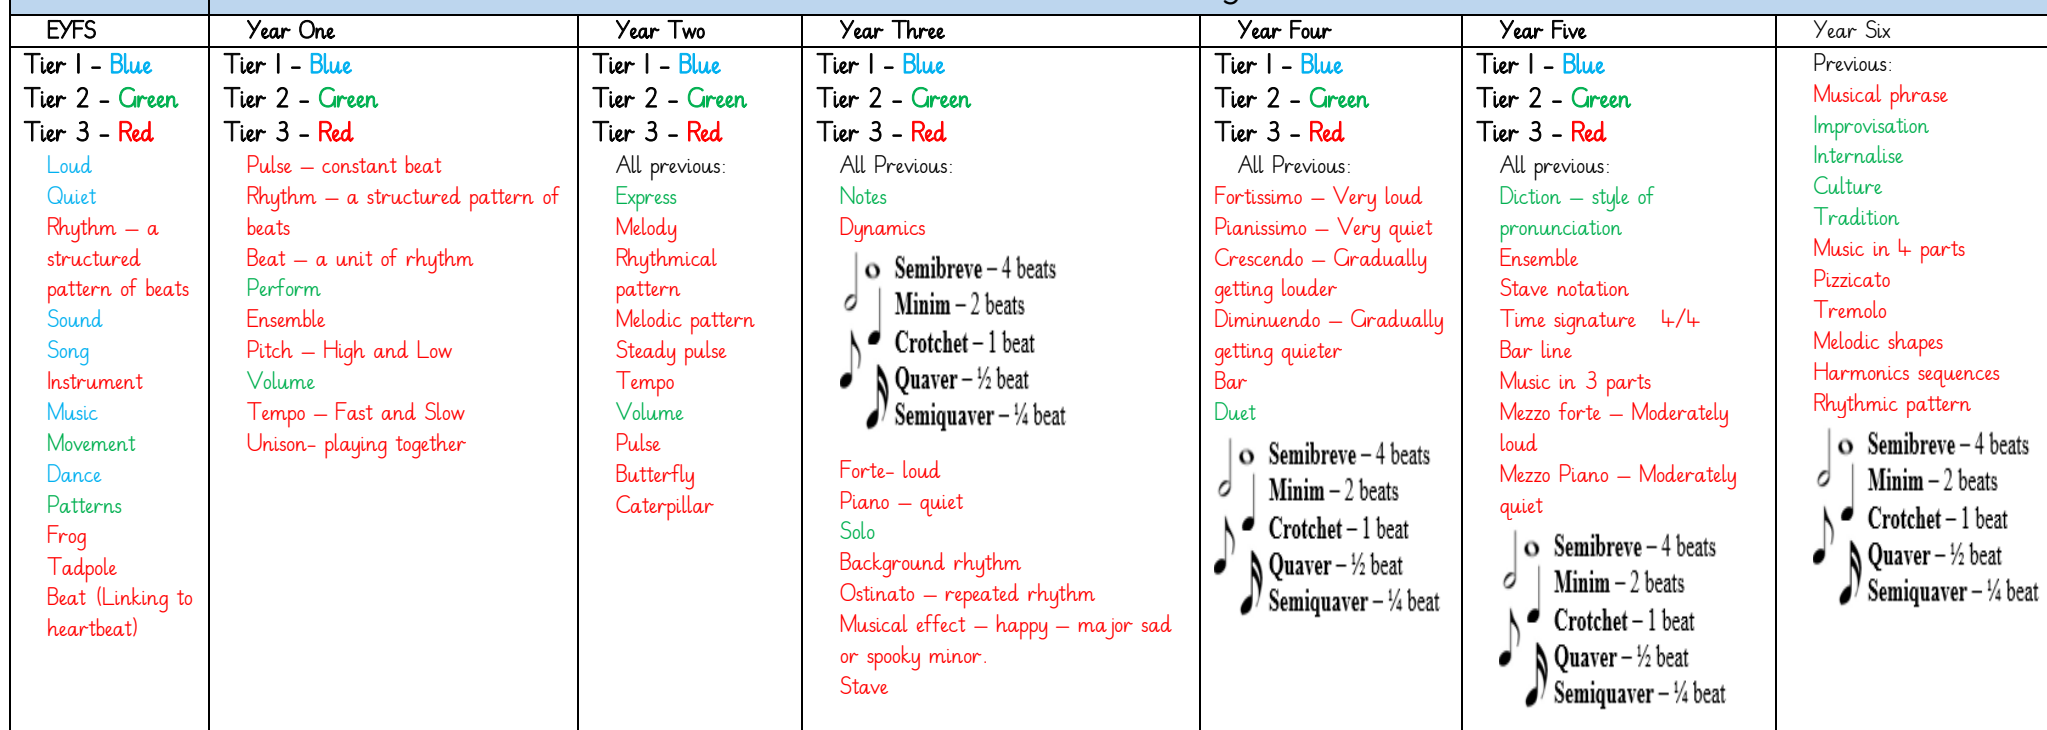 EYFS
Tier 1 - Blue
Tier 2 - Green
Tier 3 - Red
Loud
Quiet
Rhythm – a
structured
pattern of beats
Sound
Song
Instrument
Music
Movement
Dance
Patterns
Frog
Tadpole
Beat (Linking to
heartbeat)
Year One
Tier 1 - Blue
Tier 2 - Green
Tier 3 - Red
Pulse – constant beat
Rhythm – a structured pattern of
beats
Beat – a unit of rhythm
Perform
Ensemble
Pitch – High and Low
Volume
Tempo – Fast and Slow
Unison- playing together
Year Two
Tier 1 - Blue
Tier 2 - Green
Tier 3 - Red
All previous:
Express
Melody
Rhythmical
pattern
Melodic pattern
Steady pulse
Tempo
Volume
Pulse
Butterfly
Caterpillar
Year Three
Tier 1 - Blue
Tier 2 - Green
Tier 3 - Red
All Previous:
Notes
Dynamics
Semibreve – 4 beats
Minim – 2 beats
Crotchet – 1 beat
Quaver – ½ beat
Semiquaver – ¼ beat
Forte- loud
Piano – quiet
Solo
Background rhythm
Ostinato – repeated rhythm
Musical effect – happy – major sad
or spooky minor.
Stave
Year Four
Tier 1 - Blue
Tier 2 - Green
Tier 3 - Red
All Previous:
Fortissimo – Very loud
Pianissimo – Very quiet
Crescendo – Gradually
getting louder
Diminuendo – Gradually
getting quieter
Bar
Duet
Semibreve – 4 beats
Minim – 2 beats
Crotchet – 1 beat
Quaver – ½ beat
Semiquaver – ¼ beat
Year Five
Tier 1 - Blue
Tier 2 - Green
Tier 3 - Red
All previous:
Diction – style of
pronunciation
Ensemble
Stave notation
Time signature 4/4
Bar line
Music in 3 parts
Mezzo forte – Moderately
loud
Mezzo Piano – Moderately
quiet
Semibreve – 4 beats
Minim – 2 beats
Crotchet – 1 beat
Quaver – ½ beat
Semiquaver – ¼ beat
Year Six
Previous:
Musical phrase
Improvisation
Internalise
Culture
Tradition
Music in 4 parts
Pizzicato
Tremolo
Melodic shapes
Harmonics sequences
Rhythmic pattern
Semibreve – 4 beats
Minim – 2 beats
Crotchet – 1 beat
Quaver – ½ beat
Semiquaver – ¼ beat